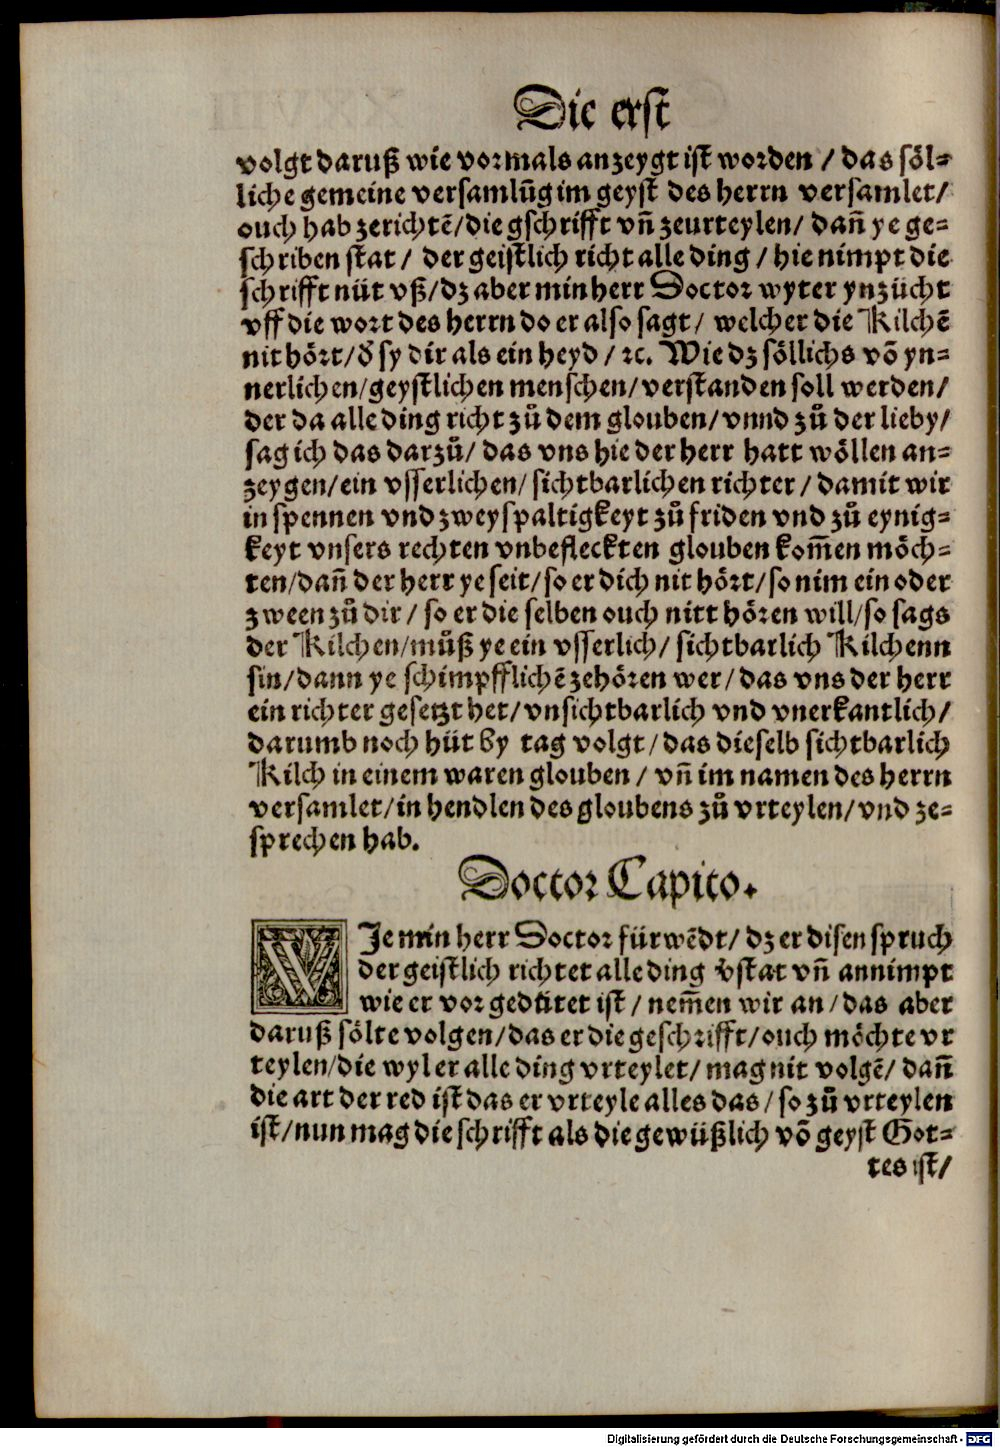 Die erst
volgt daruß wie vormals anzeygt ist worden / das söl⸗
liche gemeine versamlũg im geyst des herrn versamlet/
ouch hab zerichtẽ/die gschrifft vñ zeurteylen/ dañ ye ge⸗
schriben stat / der geistlich richt alle ding / hie nimpt die
schrifft nüt vß/dz aber min herr Doctor wyter ynzücht
vff die wort des herrn do er also sagt/ welcher die Kilchẽ
nit hört/ð sy dir als ein heyd / ꝛc. Wie dz söllichs võ yn⸗
nerlichen/geystlichen menschen/verstanden soll werden/
der da alle ding richt zů dem glouben/vnnd zů der lieby/
sag ich das darzů/ das vns hie der herr hatt wöllen an⸗
zeygen/ein vsserlichen/ sichtbarlichen richter / damit wir
in spennen vnd zweyspaltigkeyt zů friden vnd zů eynig⸗
keyt vnsers rechten vnbefleckten glouben kom̃en möch⸗
ten/dañ der herr ye seit/so er dich nit hört/so nim ein oder
zween zů dir / so er die selben ouch nitt hören will/so sags
der Kilchen/můß ye ein vsserlich/ sichtbarlich Kilchenn
sin/dann ye schimpfflichẽ zehören wer/das vns der herr
ein richter gesetzt het/vnsichtbarlich vnd vnerkantlich/
darumb noch hüt by tag volgt/das dieselb sichtbarlich
Kilch in einem waren glouben / vñ im namen des herrn
versamlet/in hendlen des gloubens zů vrteylen/vnd ze⸗
sprechen hab.
Doctor Capito.
WJe min herr Doctor fürwẽdt/ dz er disen spruch
der geistlich richtet alle ding v̊stat vñ annimpt
wie er vor gedütet ist / nem̃en wir an/das aber
daruß sölte volgen/das er die geschrifft/ouch möchte vr
teylen/die wyl er alle ding vrteylet/ mag nit volgẽ/ dañ
die art der red ist das er vrteyle alles das/so zů vrteylen
ist/nun mag die schrifft als die gewüßlich võ geyst Got⸗
tes ist/
Digitalisierung gefördert durch die Deutsche Forschungsgemeinschaft - DFG